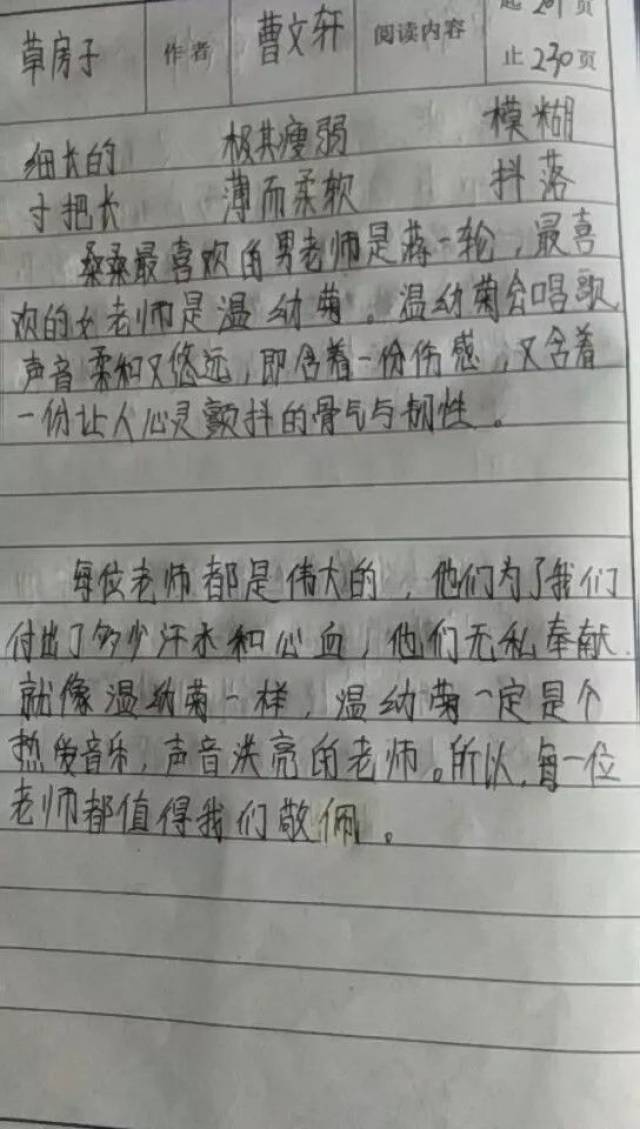 起201页
草房子 作者 曹文轩 阅读内容
止230页
细长的 极其瘦弱 模糊
寸把长 薄而柔软 抖落
桑桑最喜欢的男老师是蒋一轮，最喜
欢的女老师是温幼菊。温幼菊会唱歌，
声音柔和又悠远，即含着一份伤感，又含着
一份让人心灵颤抖的骨气与韧性。
每位老师都是伟大的，他们为了我们
付出了多少汗水和心血，他们无私奉献，
就像温幼菊一样，温幼菊一定是个
热爱音乐，声音洪亮的老师。所以，每一位
老师都值得我们敬佩。